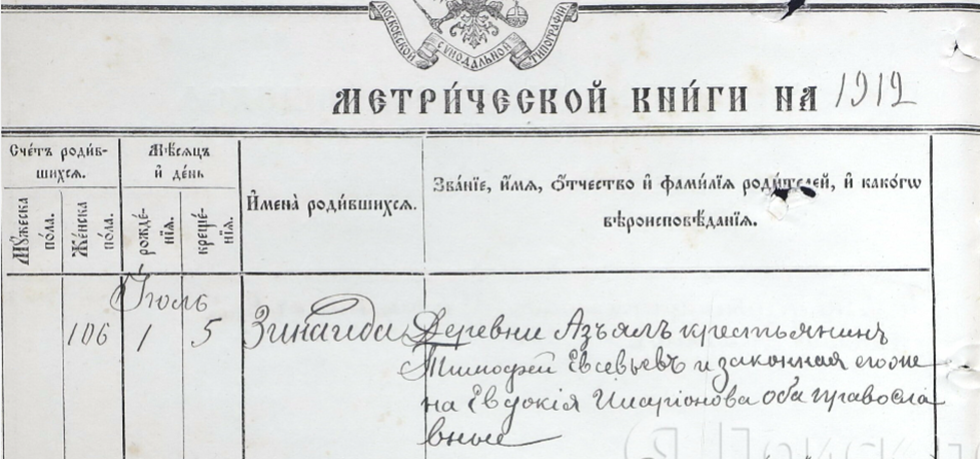 МОСКОВСКОЙ СѴНОДАЛЬНОЙ ТИПОГРАФІИ
МЕТРИ́ЧЕСКОЙ КНИ́ГИ НА 1912
Сче́тъ роди́в-
шихсѧ.
Мѣ́сѧцъ
и҆ де́нь
И҆мена̀ роди́вшихсѧ.
Зва́нїе, и҆́мѧ, ѻ҆́тчество и҆ фами́лїѧ роди́телей, и҆ како́гѡ
вѣроисповѣ́данїѧ.
Мꙋ́жеска
по́ла.
Же́нска
по́ла.
рожде́-
нїѧ.
креще́-
нїѧ.
Іюль
106 1 5 Зинаида Деревни Азъялъ крестьянинъ
Тимофей Евсевьевъ и законная его же
на Евдокія Иларіонова оба правосла
вные